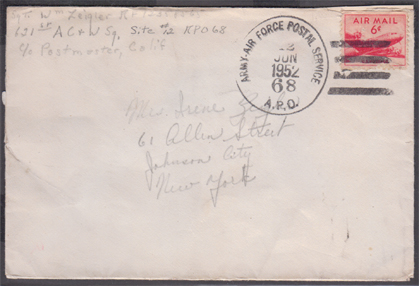 631st AC & W Sq. Site 12 APO 68
c/o Postmaster, Calif
ARMY-AIR FORCE POSTAL SERVICE
12
JUN
1952
68
A.P.O.
AIR MAIL
6¢
Miss. Irene
61 Allen Street
Johnson City
New York